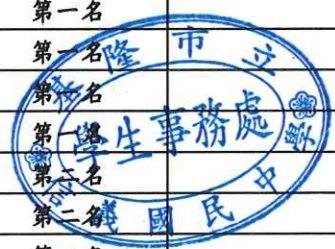 第一名
第一名
第一名
第一名
第二名
第二名
基隆市立
學生事務處
義國民中學